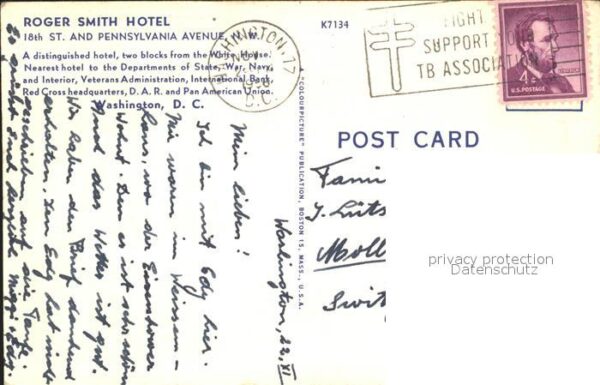 ROGER SMITH HOTEL
18th ST. AND PENNSYLVANIA AVENUE, N. W.
A distinguished hotel, two blocks from the White House.
Nearest hotel to the Departments of State, War, Navy,
and Interior, Veterans Administration, International Bank,
Red Cross headquarters, D. A. R. and Pan American Union.
Washington, D. C.
K7134
WASHINGTON, 17
NOV
D.C.
FIGHT TB
SUPPORT YOUR
TB ASSOCIATION
4¢
U.S. POSTAGE
"COLOURPICTURE" PUBLICATION, BOSTON 15, MASS., U.S.A.
POST CARD
Washington, 22. XI
Mein lieben!
Ich bin mit Edy hier.
Wir waren im Weissen-
haus, wo der Eisenhower
Wohnt. Den es ist sehr schön
und das Wetter ist gut.
Wir haben den Brief dankend
erhalten. Edy hat nicht
geschrieben auf die
Es
Fami
J. Lüts
Moll
Swit
privacy protection
Datenschutz